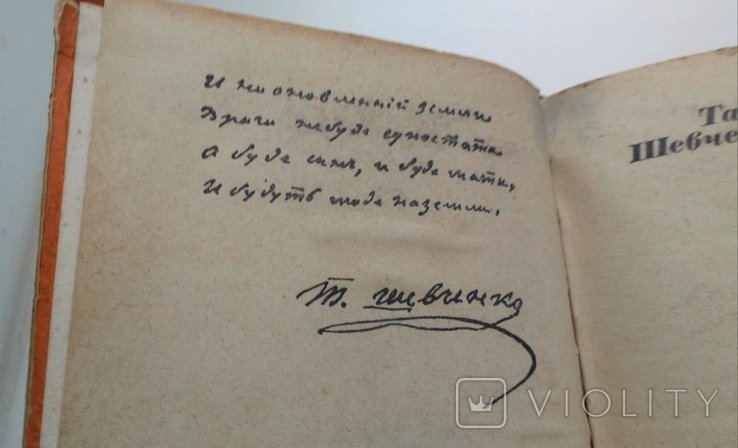 И на оновленній земли
Врага не буде супостата
А буде синъ, и буде мати,
И будуть люде на земли.
Т. Шевченко
Та
Шевче
VIOLITY